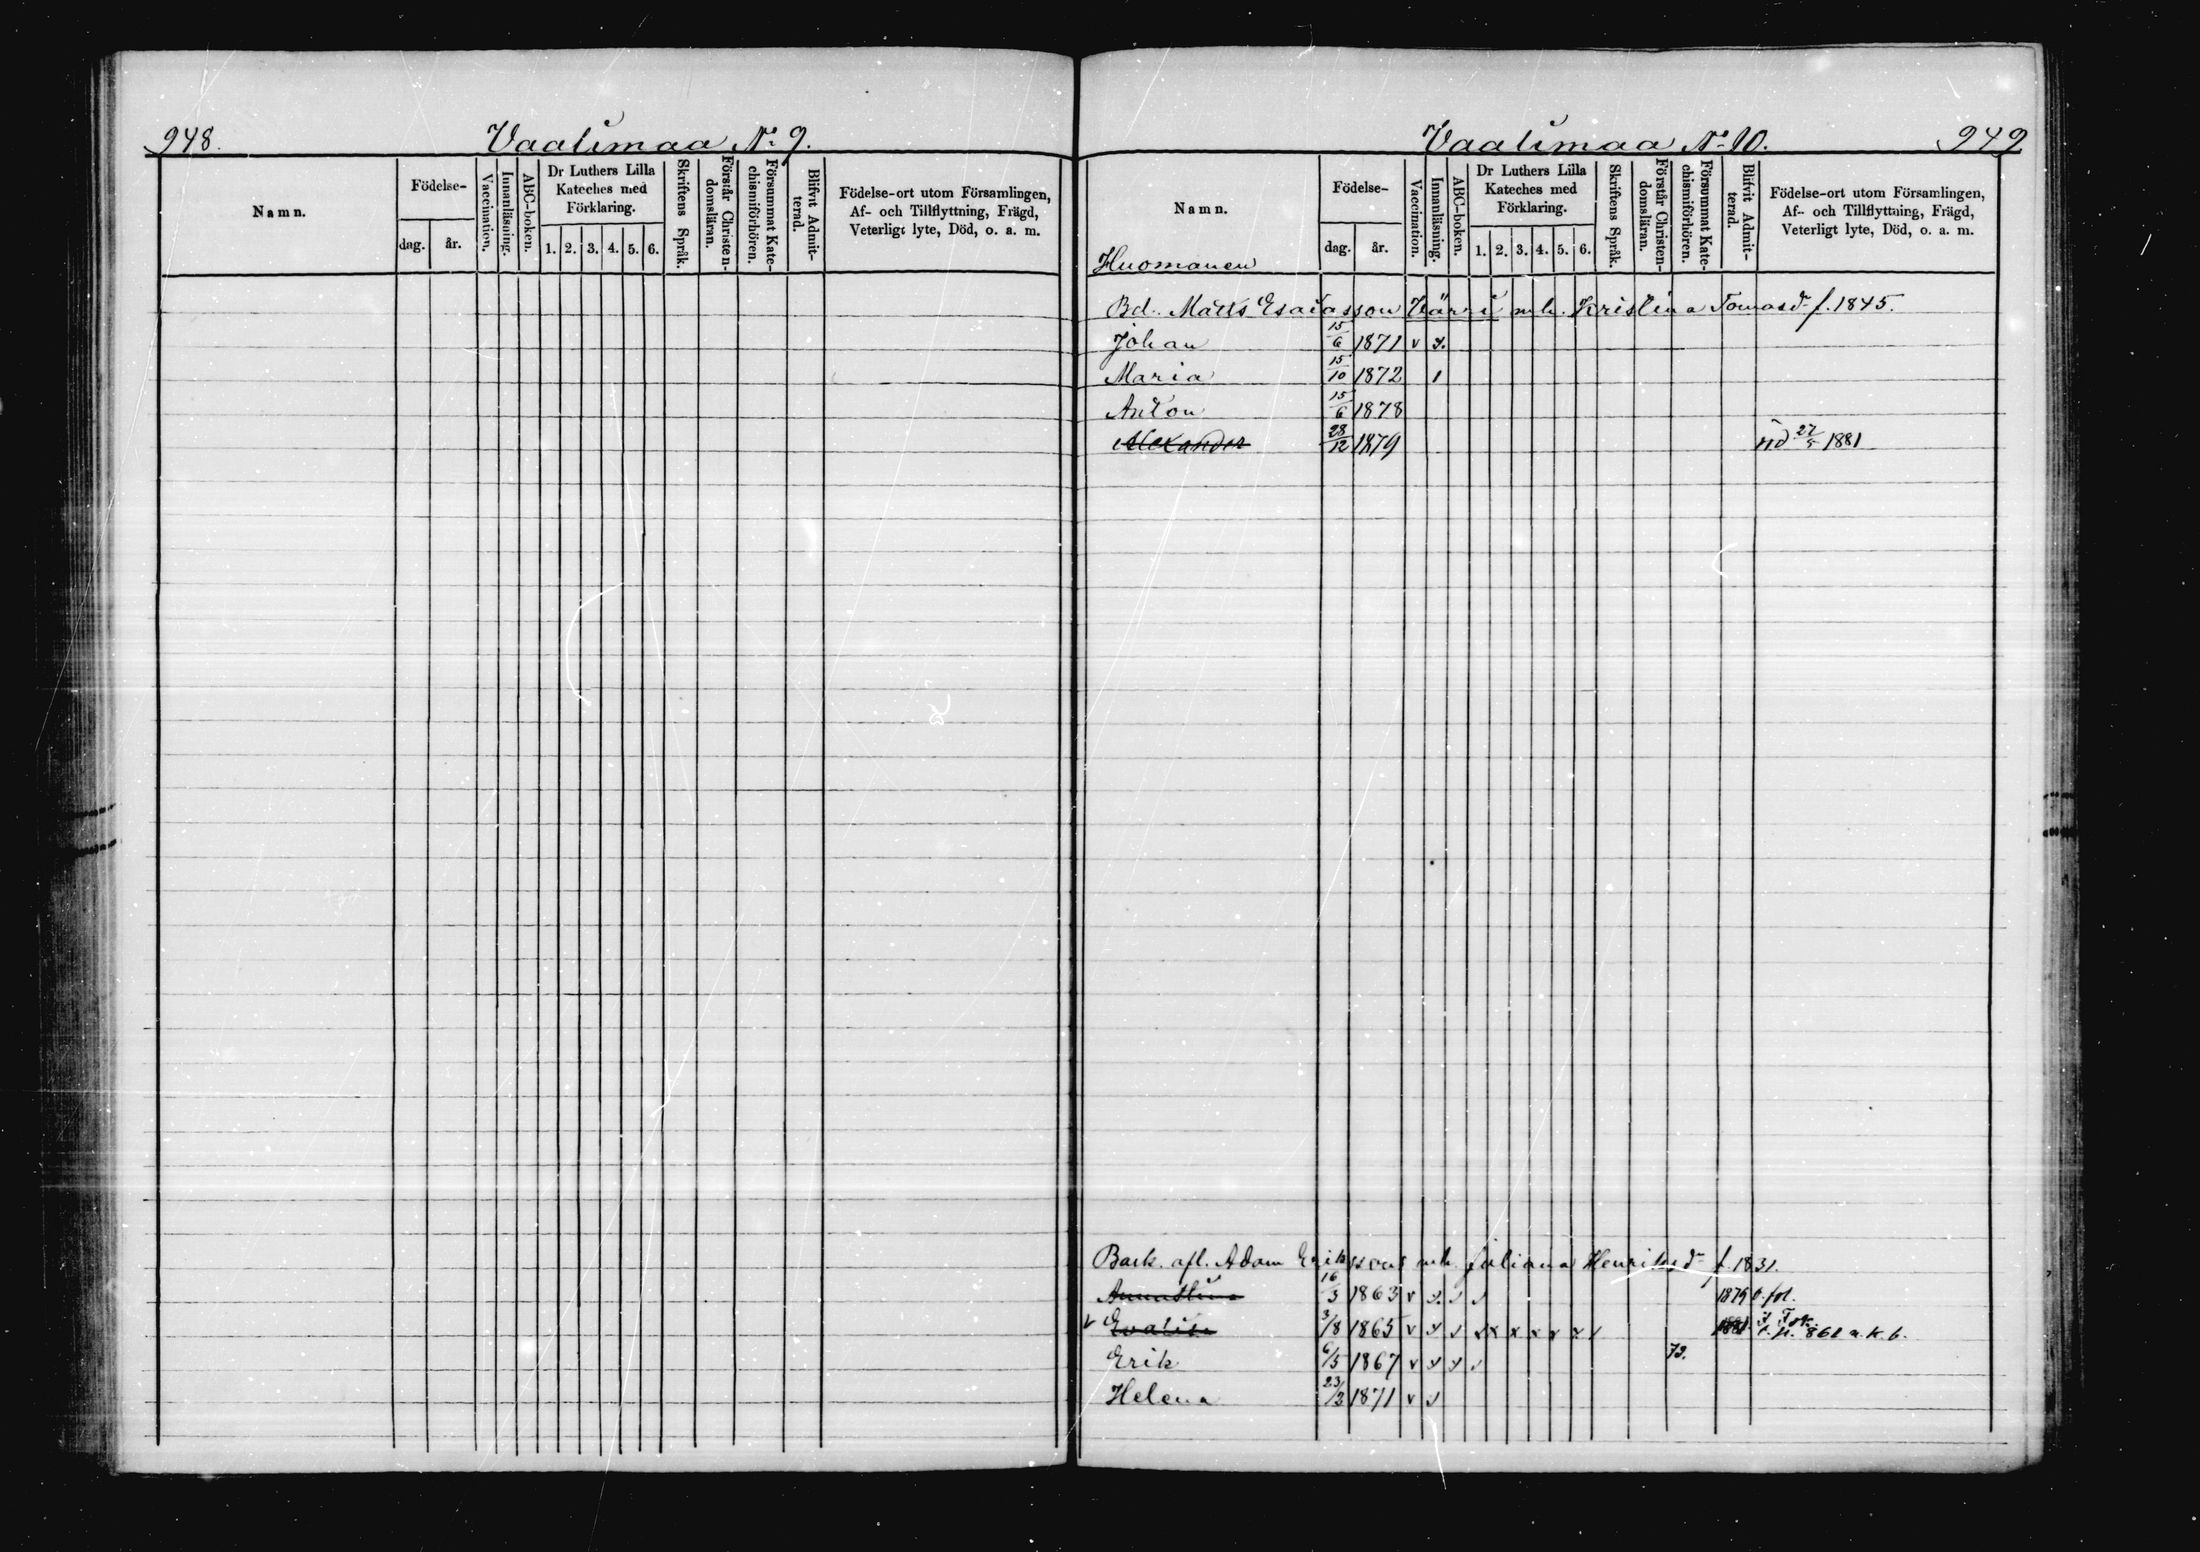 948. Vaalimaa No 9.
Namn.
Födelse-
dag. år.
Vaccination.
Innanläsning.
ABC-boken.
Dr Luthers Lilla Kateches med Förklaring.
1. 2. 3. 4. 5. 6.
Skriftens Språk.
Förstår Christendomsläran.
Försummat Katechismiförhören.
Blifvit Admitterad.
Födelse-ort utom Församlingen,
Af- och Tillflyttning, Frägd,
Veterligt lyte, Död, o. a. m.
Vaalimaa No 10. 949
Namn.
Födelse-
dag. år.
Vaccination.
Innanläsning.
ABC-boken.
Dr Luthers Lilla Kateches med Förklaring.
1. 2. 3. 4. 5. 6.
Skriftens Språk.
Förstår Christendomsläran.
Försummat Katechismiförhören.
Blifvit Admitterad.
Födelse-ort utom Församlingen,
Af- och Tillflyttning, Frägd,
Veterligt lyte, Död, o. a. m.
Huomanen
Bd. Matts Esaiasson Värri mh. Kristina Tomasd. f. 1845.
Johan 15/6 1871 v
Maria 15/10 1872
Anton 15/6 1878
Alexander 28/12 1879 död 27/5 1881
Back. afl. Adam Erikssons mh. Juliana Henriksd. f. 1831.
Annastina 16/3 1863 v 1879 fol.
v Evalisa 3/8 1865 v x x x x x 1881 861 a. k. b.
Erik 6/5 1867 v 79.
Helena 23/3 1871 v